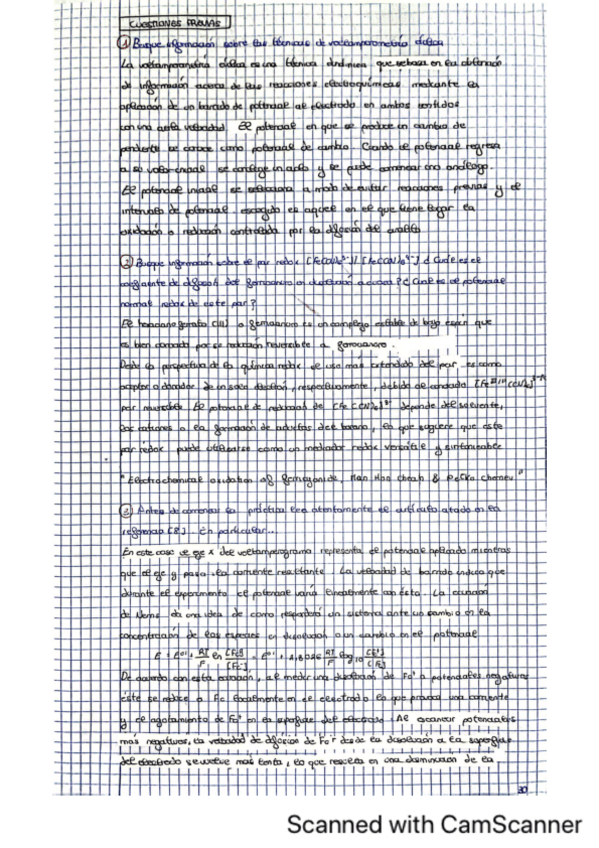 CUESTIONES PREVIAS
① Busque información sobre las técnicas de voltamperometría cíclica
La voltamperometría cíclica es una técnica dinámica que se basa en la obtención
de información acerca de las reacciones electroquímicas mediante la
aplicación de un barrido de potencial al electrodo en ambos sentidos
con una cierta velocidad. El potencial en que se produce un cambio de
pendiente se conoce como potencial de cambio. Cuando el potencial regresa
a su valor inicial se completa un ciclo y se puede comenzar uno análogo.
El potencial inicial se selecciona a modo de evitar reacciones previas y el
intervalo de potencial escogido es aquel en el que tiene lugar la
oxidación o reducción controlada por la difusión del analito
② Busque información sobre el par redox ¿Cuál es el
coeficiente de difusión del ferricianuro en disolución acuosa? ¿Cuál es el potencial
normal redox de este par?
El hexacianoferrato (III) o ferricianuro es un complejo estable de bajo espín que
es bien conocido por su reducción reversible a ferrocianuro.
Desde la perspectiva de la química redox el uso más extendido del par es como
aceptor o donador de un solo electrón, respectivamente, debido al
par reversible El potencial de reducción de [Fe(CN)6]3- depende del solvente,
los cationes o la formación de aductos del borano, lo que sugiere que este
par redox puede utilizarse como un mediador redox versátil y sintonizable
"Electrochemical oxidation of ferricyanide, &
③ Antes de comenzar la práctica lea atentamente el artículo citado en la
referencia [8]. En particular...
En este caso el eje x del voltamperograma representa el potencial aplicado mientras
que el eje y pasa la corriente resultante. La velocidad de barrido indica que
durante el experimento el potencial varía linealmente con ésta. La ecuación
de Nernst da una idea de como responderá un sistema ante un cambio en la
concentración de las especies en disolución o un cambio en el potencial
De acuerdo con esta ecuación, al medir una disolución de Fc+ a potenciales negativos
éste se reduce a Fc localmente en el electrodo lo que provoca una corriente
y el agotamiento de Fc+ en la superficie del electrodo. Al alcanzar potenciales
más negativos, la velocidad de difusión de Fc+ desde la disolución a la superficie
del electrodo se vuelve más lenta, lo que resulta en una disminución de la
20
Scanned with CamScanner